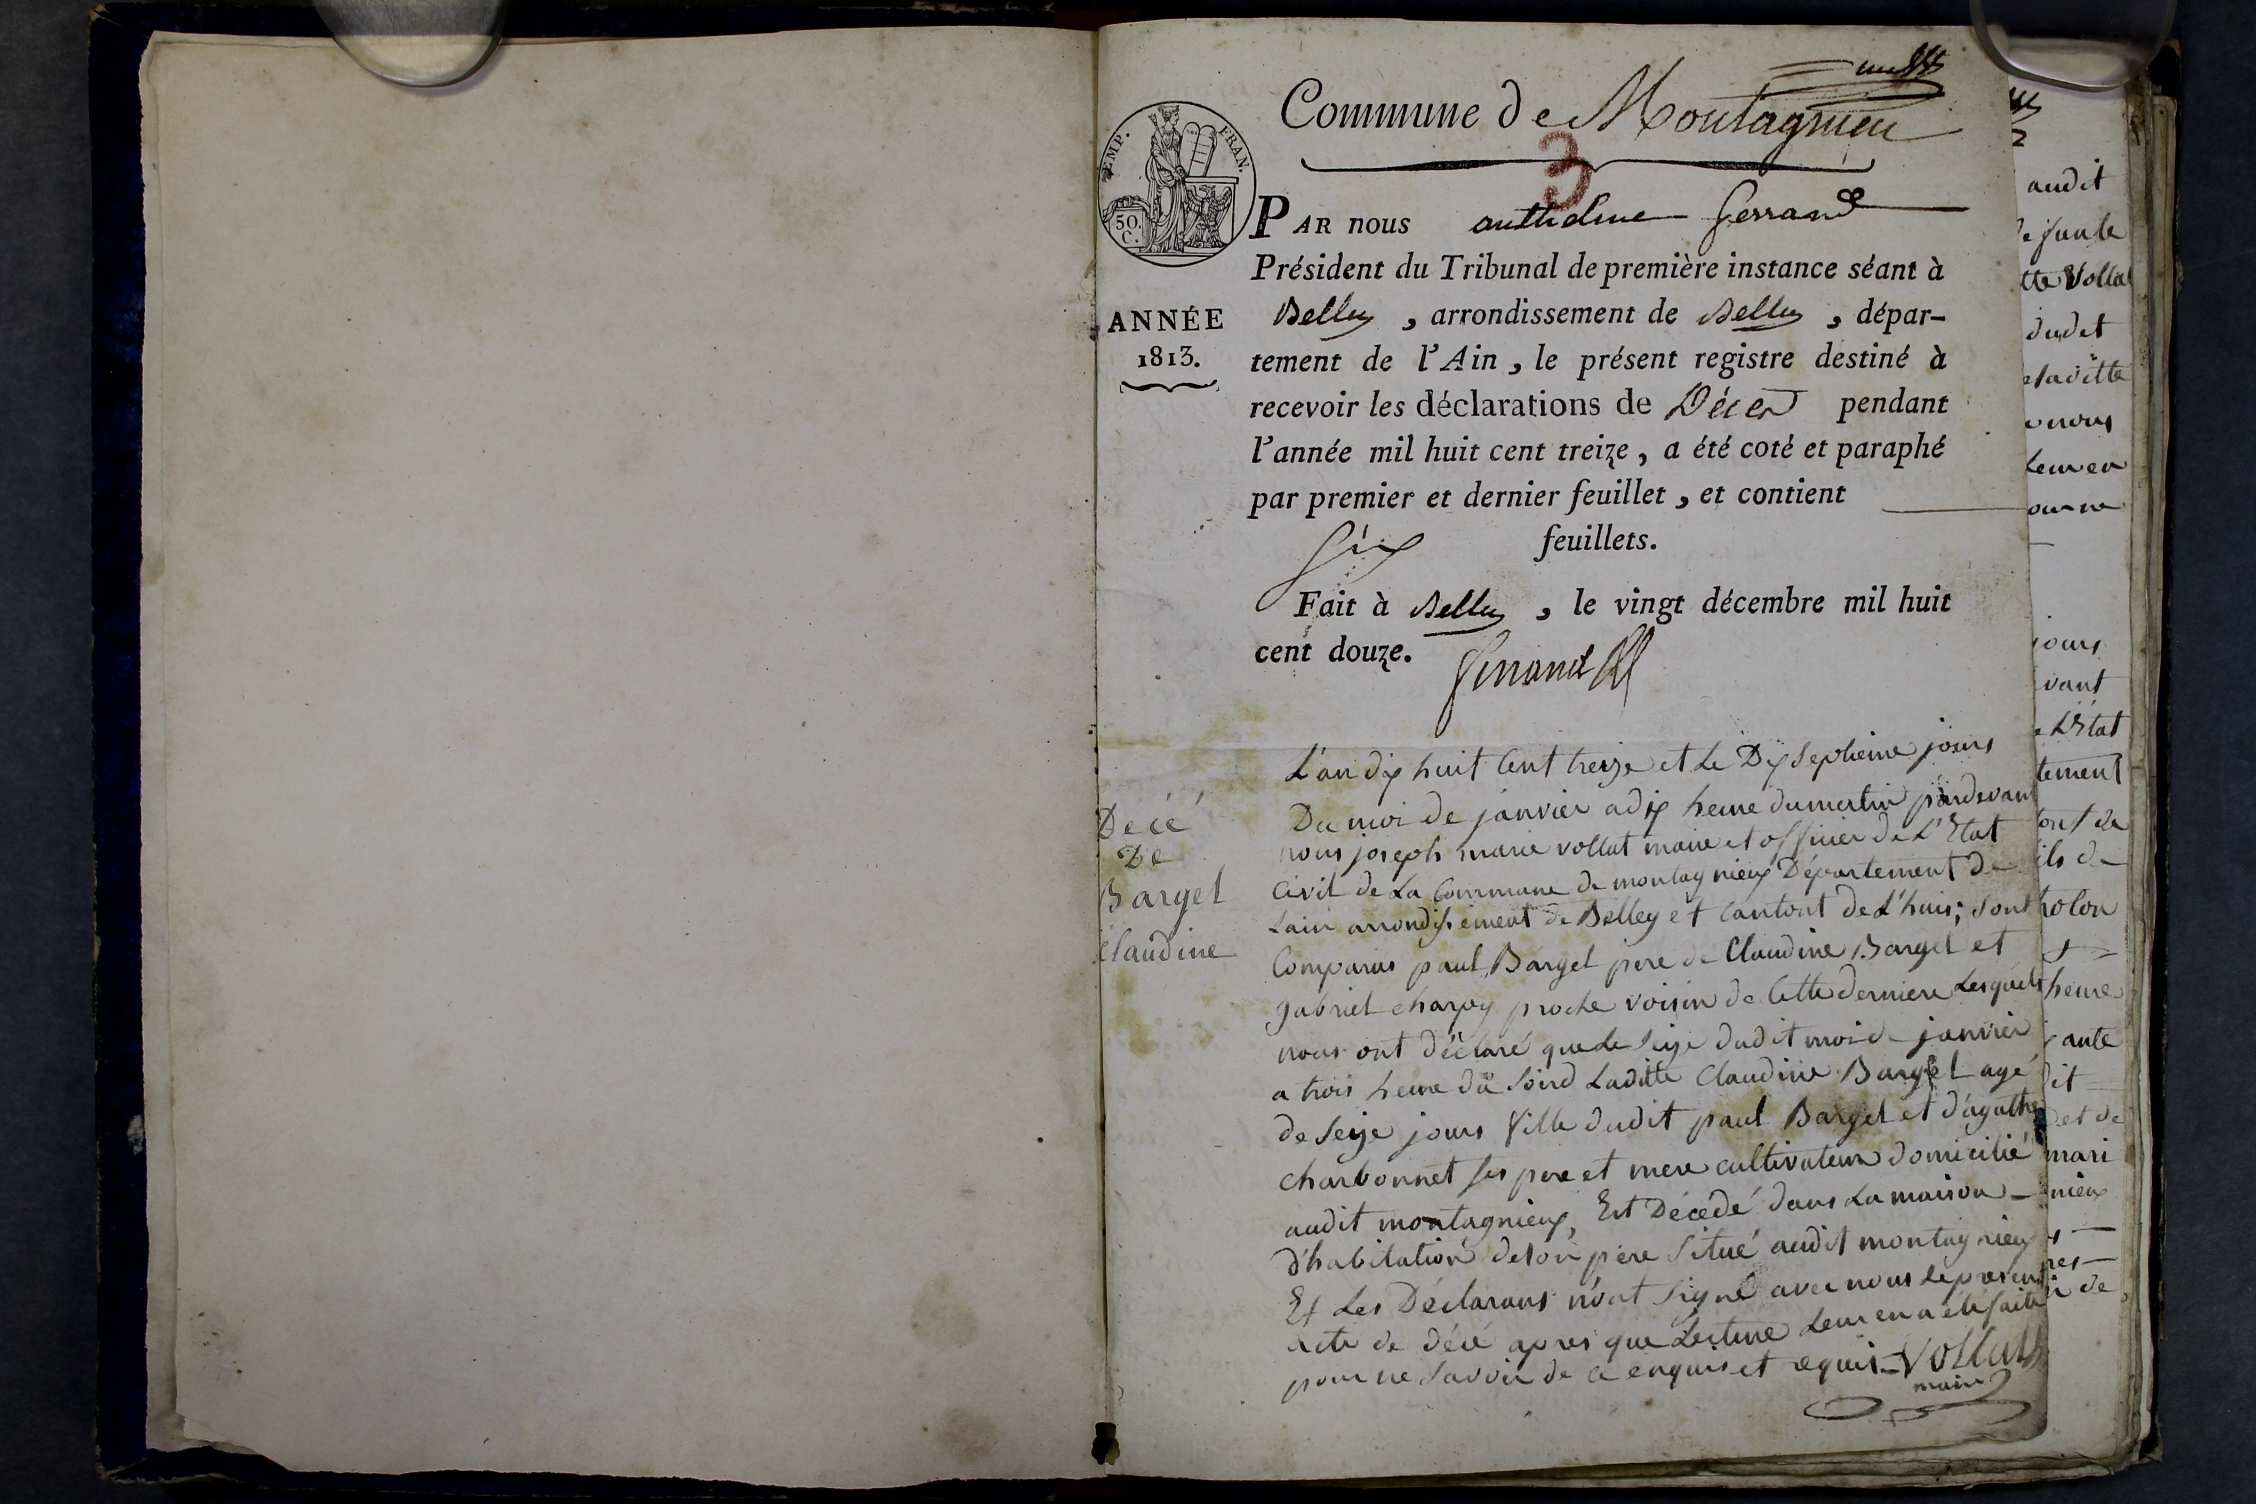 Commune de Montagnieu
3
EMP. FRAN.
50.
C.
PAR nous anthelme ferrand
Président du Tribunal de première instance séant à
Belley, arrondissement de Belley, dépar-
ANNÉE
1813.
tement de l'Ain, le présent registre destiné à
recevoir les déclarations de Décès pendant
l'année mil huit cent treize, a été coté et paraphé
par premier et dernier feuillet, et contient
Six feuillets.
Fait à Belley, le vingt décembre mil huit
cent douze.
ferrand
Décé
De
Bargel
Claudine
L'an dix huit Cent treize et Le Dix Septieme jours
Du moi de janvier a dix heure du matin pardevant
nous joseph marie vollat maire et officier de L'Etat
Civil de La Commune de montagnieux Département De
Lain arrondissement de Belley et Cantont de L'huis; Sont
Comparus paul Bargel pere de Claudine Bargel et
gabriel charpy proche voisin de Cette derniere Lesquels
nous ont déclaré que Le Seize dudit moi de janvier
a trois heure du Soird Laditte Claudine Bargel agé
de Seize jours fille dudit paul Bargel et d'agathe
charbonnet ses pere et mere cultivateur domicilié
audit montagnieux, Est Décédé dans La maison
d'habitation de son père Situé audit montagnieux
Et Les Déclarans n'ont Signé avec nous le present
acte de décé apres que Lecture Leur en a été faite
pour ne Savoir de ce enquis et requis - Vollat
maire
audit
tte Vollat
dudet
nous
Leur en
jours
vant
L'Etat
tement
ils de
heure
mari
de